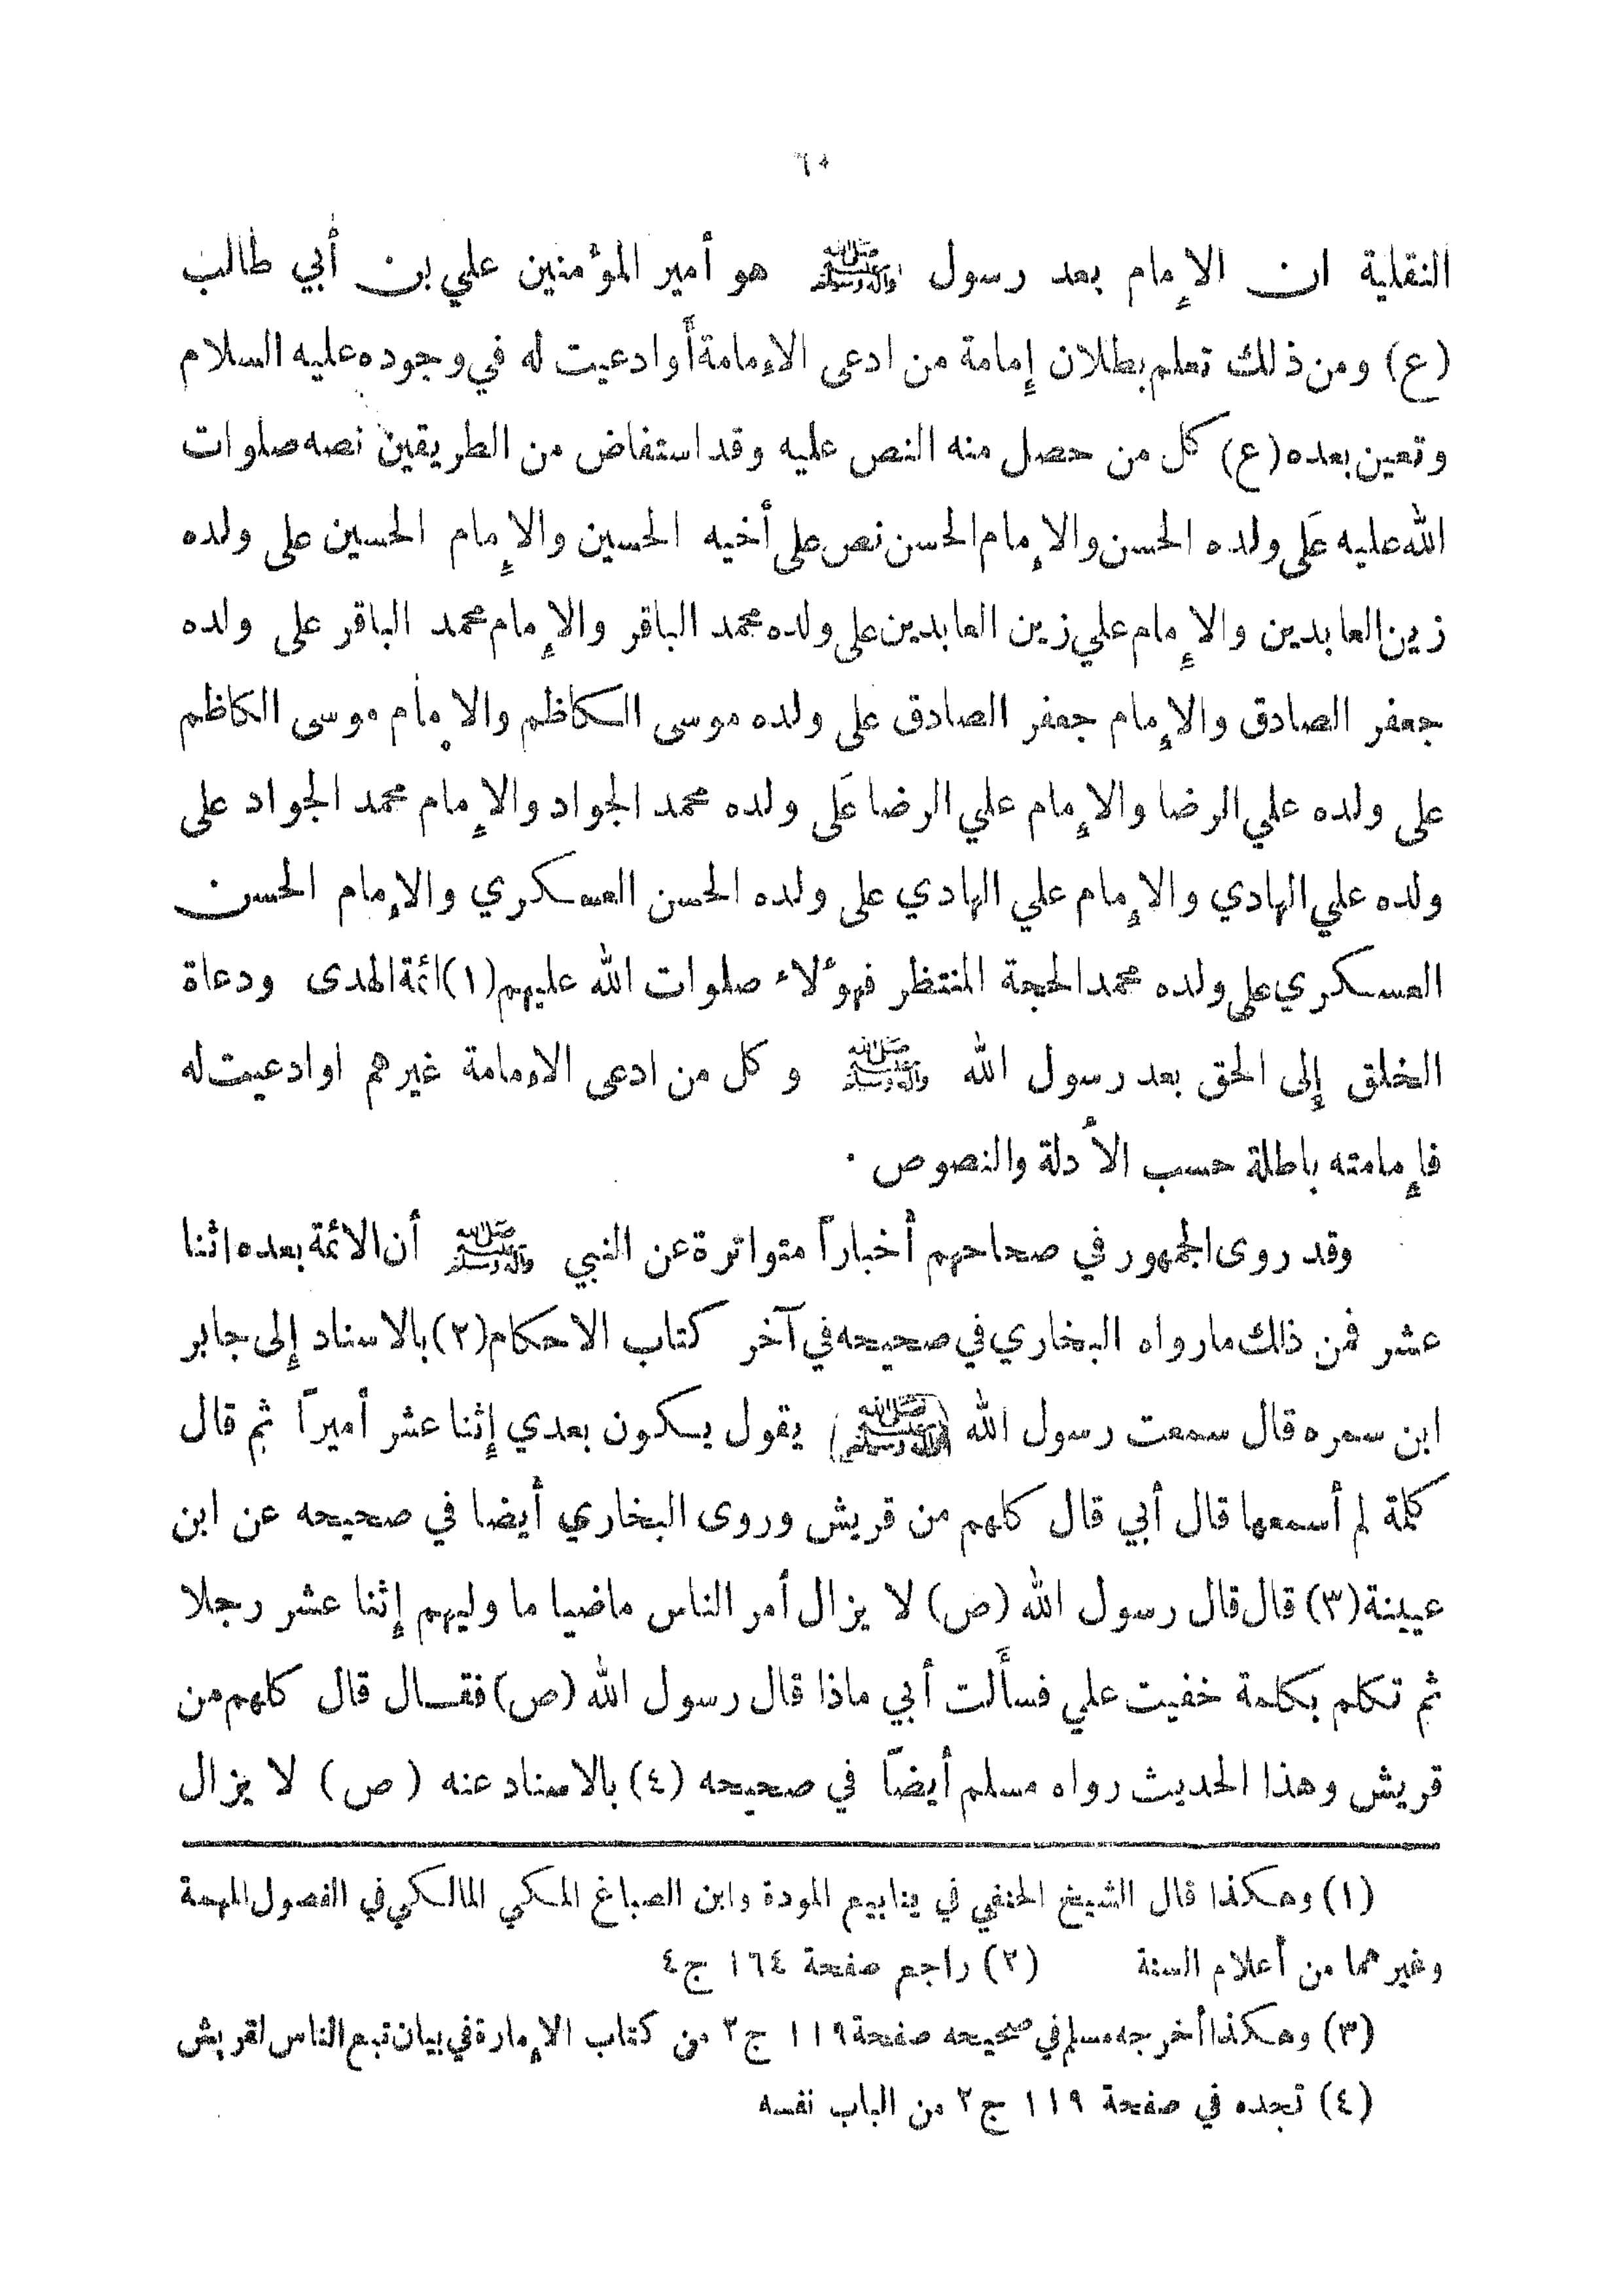 ٦٠
النقلية ان الإمام بعد رسول ﷺ هو أمير المؤمنين علي بن أبي طالب
(ع) ومن ذلك تعلم بطلان إمامة من ادعى الإمامة أو ادعيت له في وجوده عليه السلام
وتعين بعده (ع) كل من حصل منه النص عليه وقد استفاض من الطريقين نصه صلوات
الله عليه على ولده الحسن والإمام الحسن نص على أخيه الحسين والإمام الحسين على ولده
زين العابدين والإمام علي زين العابدين على ولده محمد الباقر والإمام محمد الباقر على ولده
جعفر الصادق والإمام جعفر الصادق على ولده موسى الكاظم والإمام موسى الكاظم
على ولده علي الرضا والإمام علي الرضا على ولده محمد الجواد والإمام محمد الجواد على
ولده علي الهادي والإمام علي الهادي على ولده الحسن العسكري والإمام الحسن
العسكري على ولده محمد الحجة المنتظر فهؤلاء صلوات الله عليهم (١) ائمة الهدى ودعاة
الخلق إلى الحق بعد رسول الله ﷺ وكل من ادعى الامامة غيرهم او ادعيت له
فإمامته باطلة حسب الأدلة والنصوص .
وقد روى الجمهور في صحاحهم أخباراً متواترة عن النبي ﷺ أن الائمة بعده اثنا
عشر فمن ذلك ما رواه البخاري في صحيحه في آخر كتاب الاحكام (٢) بالاسناد إلى جابر
ابن سمره قال سمعت رسول الله (ﷺ) يقول يكون بعدي إثنا عشر أميراً ثم قال
كلمة لم أسمعها قال أبي قال كلهم من قريش وروى البخاري أيضا في صحيحه عن ابن
عيينة (٣) قال قال رسول الله (ص) لا يزال أمر الناس ماضيا ما وليهم إثنا عشر رجلا
ثم تكلم بكلمة خفيت علي فسألت أبي ماذا قال رسول الله (ص) فقال قال كلهم من
قريش وهذا الحديث رواه مسلم أيضاً في صحيحه (٤) بالاسناد عنه (ص) لا يزال
(١) وهكذا قال الشيخ الحنفي في ينابيع المودة وابن الصباغ المكي المالكي في الفصول المهمة
وغيرهما من أعلام السنة (٢) راجع صفحة ١٦٤ ج ٤
(٣) وهكذا أخرجه مسلم في صحيحه صفحة ١١٩ ج ٢ من كتاب الإمارة في بيان تبع الناس لقريش
(٤) تجده في صفحة ١١٩ ج ٢ من الباب نفسه